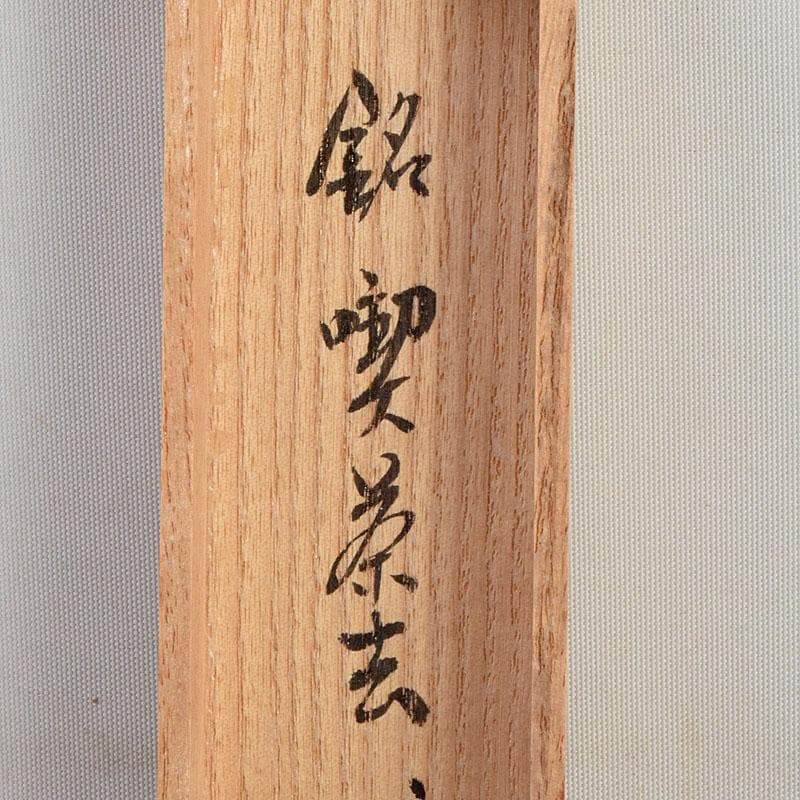 銘 喫茶去